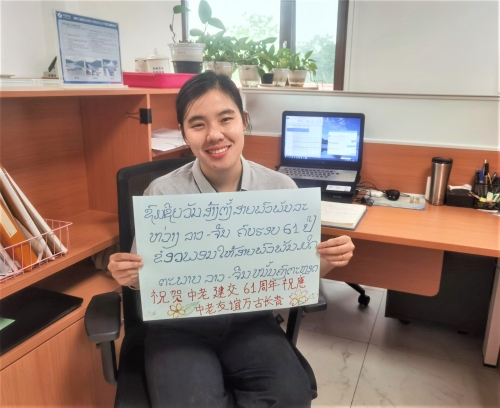 ຊົມເຊີຍວັນສ້າງຕັ້ງສາຍພົວພັນລະ
ຫວ່າງ ລາວ-ຈີນ ຄົບຮອບ 61 ປີ
ຂໍອວຍພອນໃຫ້ສາຍພົວພັນມິດ
ຕະພາບ ລາວ-ຈີນ ໝັ້ນຄົງຕະຫຼອດ
祝贺中老建交61周年祝愿
中老友谊万古长青